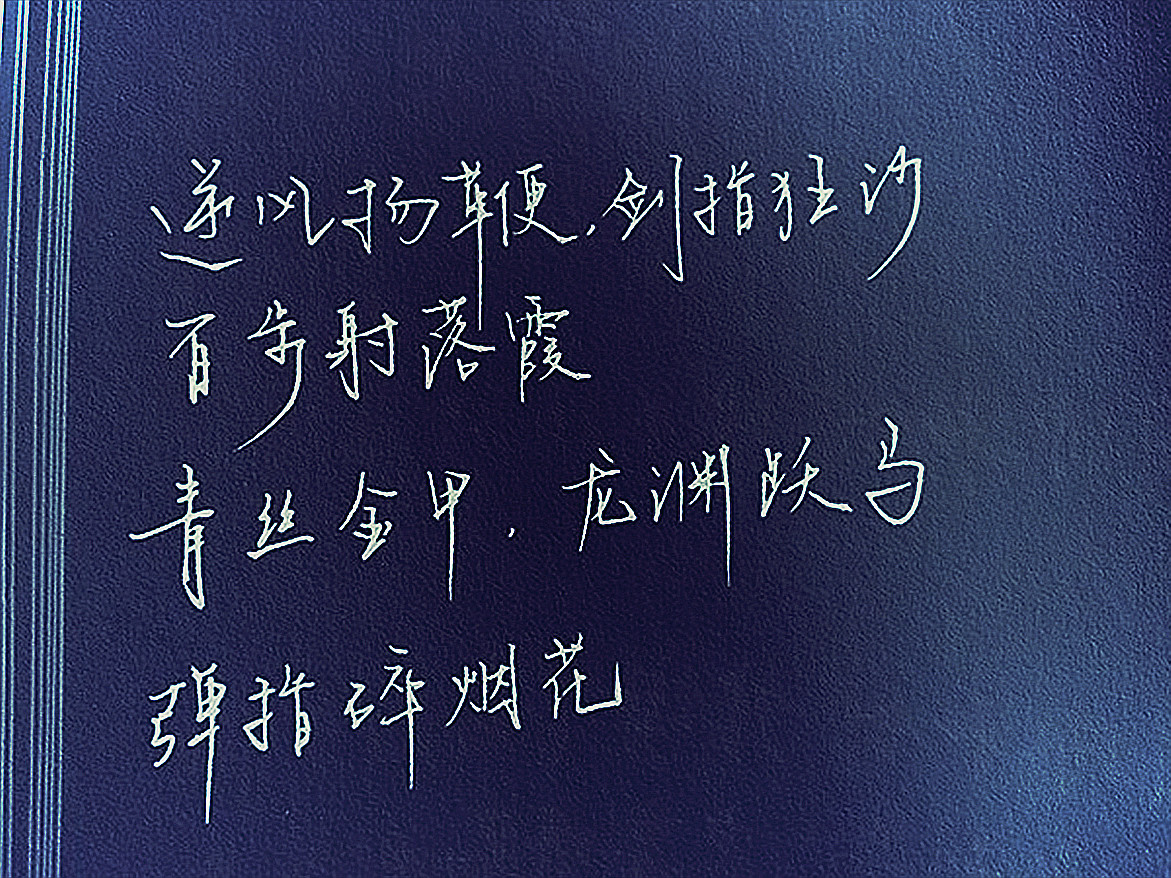 逆风扬鞭,剑指狂沙
百步射落霞
青丝金甲,龙渊跃马
弹指碎烟花